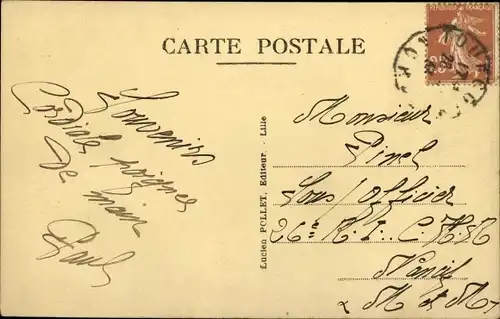 CARTE POSTALE
Souvenirs
Cordiale poignée
De main
Paul
Lucien POLLET, Editeur. - Lille
Monsieur
Pinel
Sous/officier
26e R. I. C H.R
Nancy
M et M